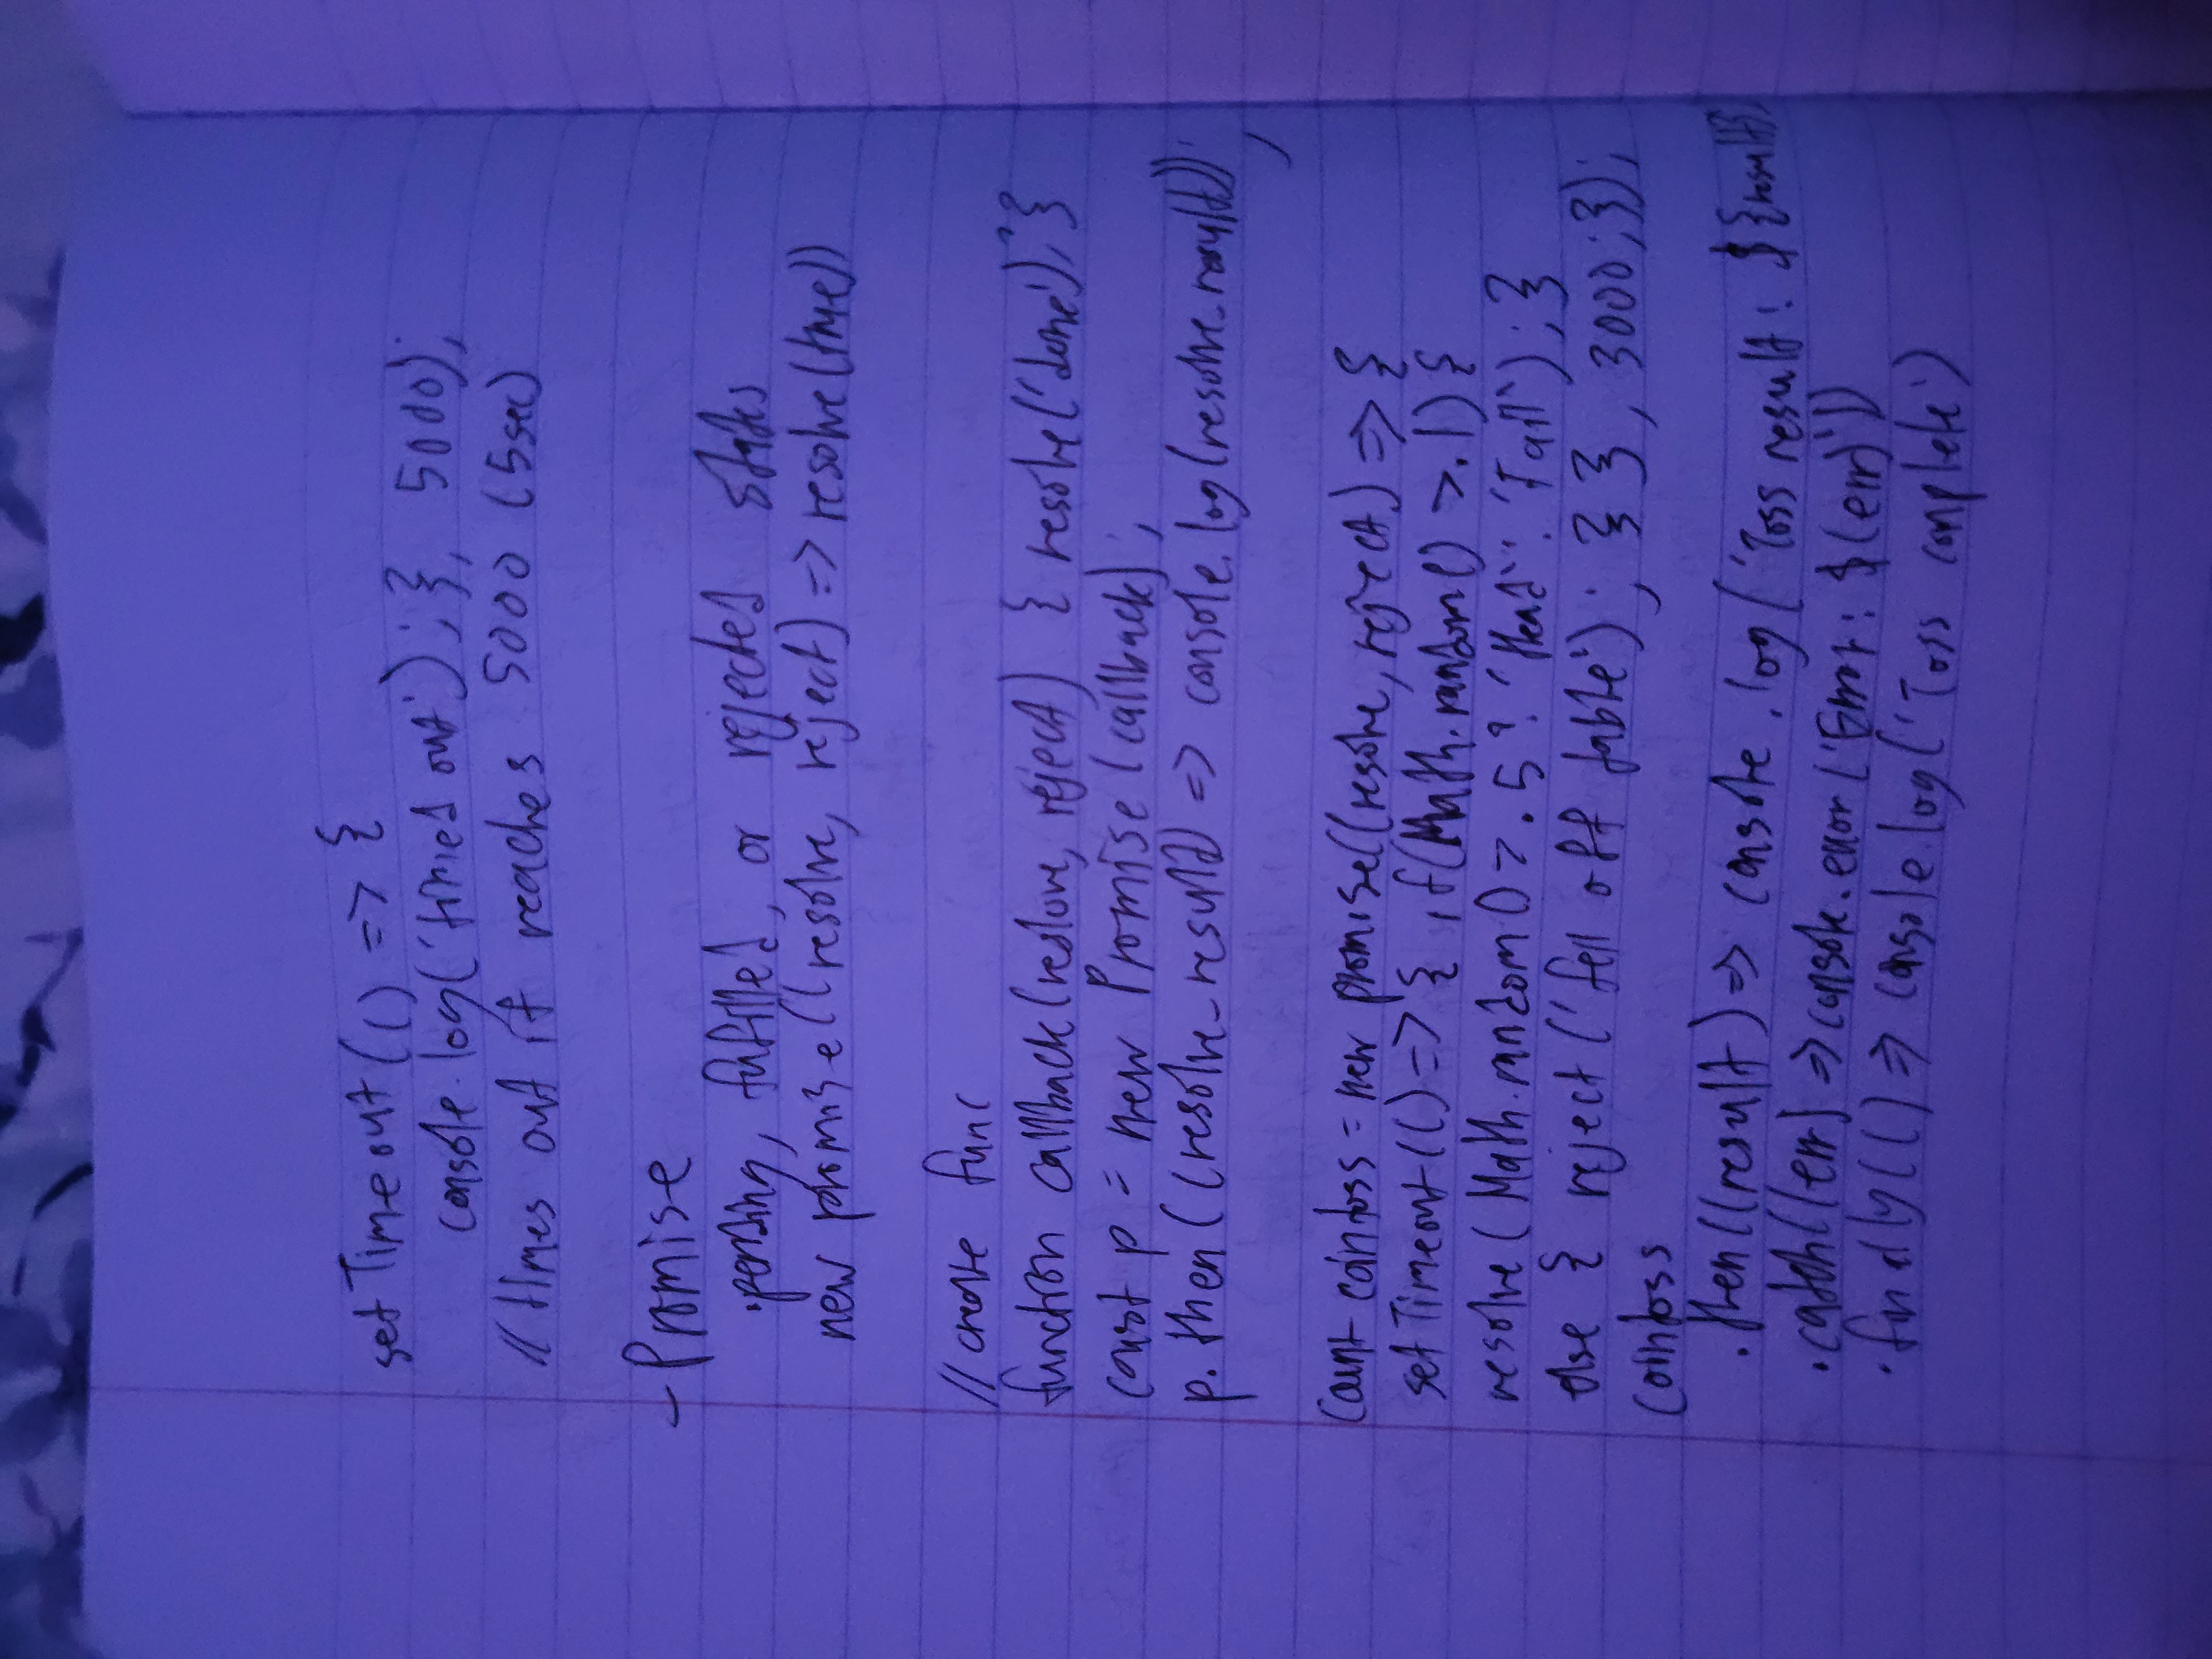 setTimeout(() => {
console.log('timed out'); }, 5000);
// times out if reaches 5000 (5sec)
- Promise
. pending, fufilled, or rejected states
new promise((resolve, reject) => resolve(true))
// create func
function callback(reslove, reject) { resolve('done'); }
const p = new Promise(callback);
p.then((resolve_result) => console.log(resolve_result));
const cointoss = new promise((resolve, reject) => {
setTimeout(() => { if(Math.random() > .1) {
resolve(Math.random() > .5 ? 'Head' : 'Tail'); }
else { reject('fell off table'); } }, 3000; });
cointoss
.then((result) => console.log('Toss result: ${result}
.catch((err) => console.error('Error: $(err)'))
.finally(() => console.log('Toss complete')